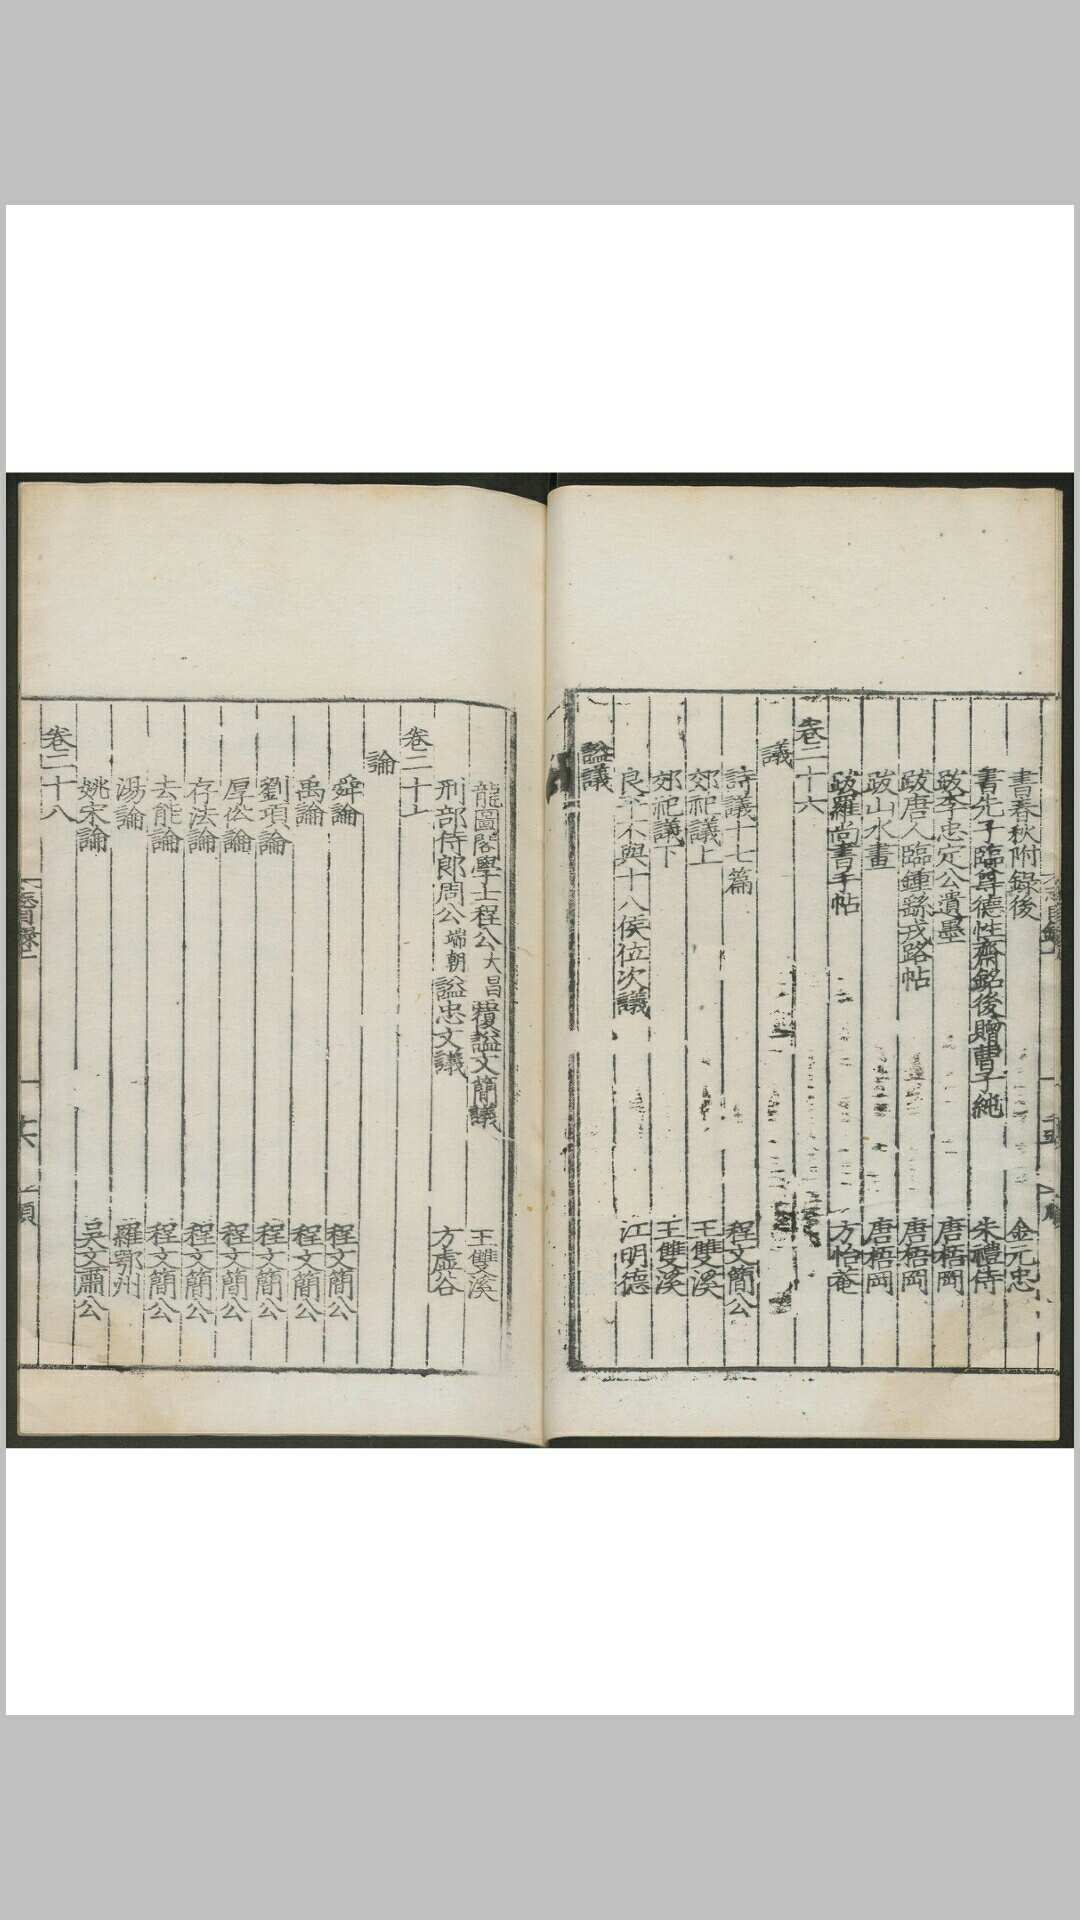 書春秋附錄後 金元忠
書先子臨尊德性齋銘後贈曹子純 朱禮侍
跋李忠定公遺墨 唐梧岡
跋唐人臨鍾繇戎路帖 唐梧岡
跋山水畫 唐梧岡
跋羅尚書手帖 方怡菴
卷二十六
議
詩議十七篇 程文簡公
郊祀議上 王雙溪
郊祀議下 王雙溪
良平不與十八侯位次議 江明德
謚議
龍圖閣學士程公大昌覆謚文簡議 王雙溪
刑部侍郎周公端朝謚忠文議 方虛谷
卷二十
論
舜論 程文簡公
禹論 程文簡公
劉項論 程文簡公
厚俗論 程文簡公
存法論 程文簡公
去能論 程文簡公
湯論 羅鄂州
姚宋論 吳文肅公
卷二十八